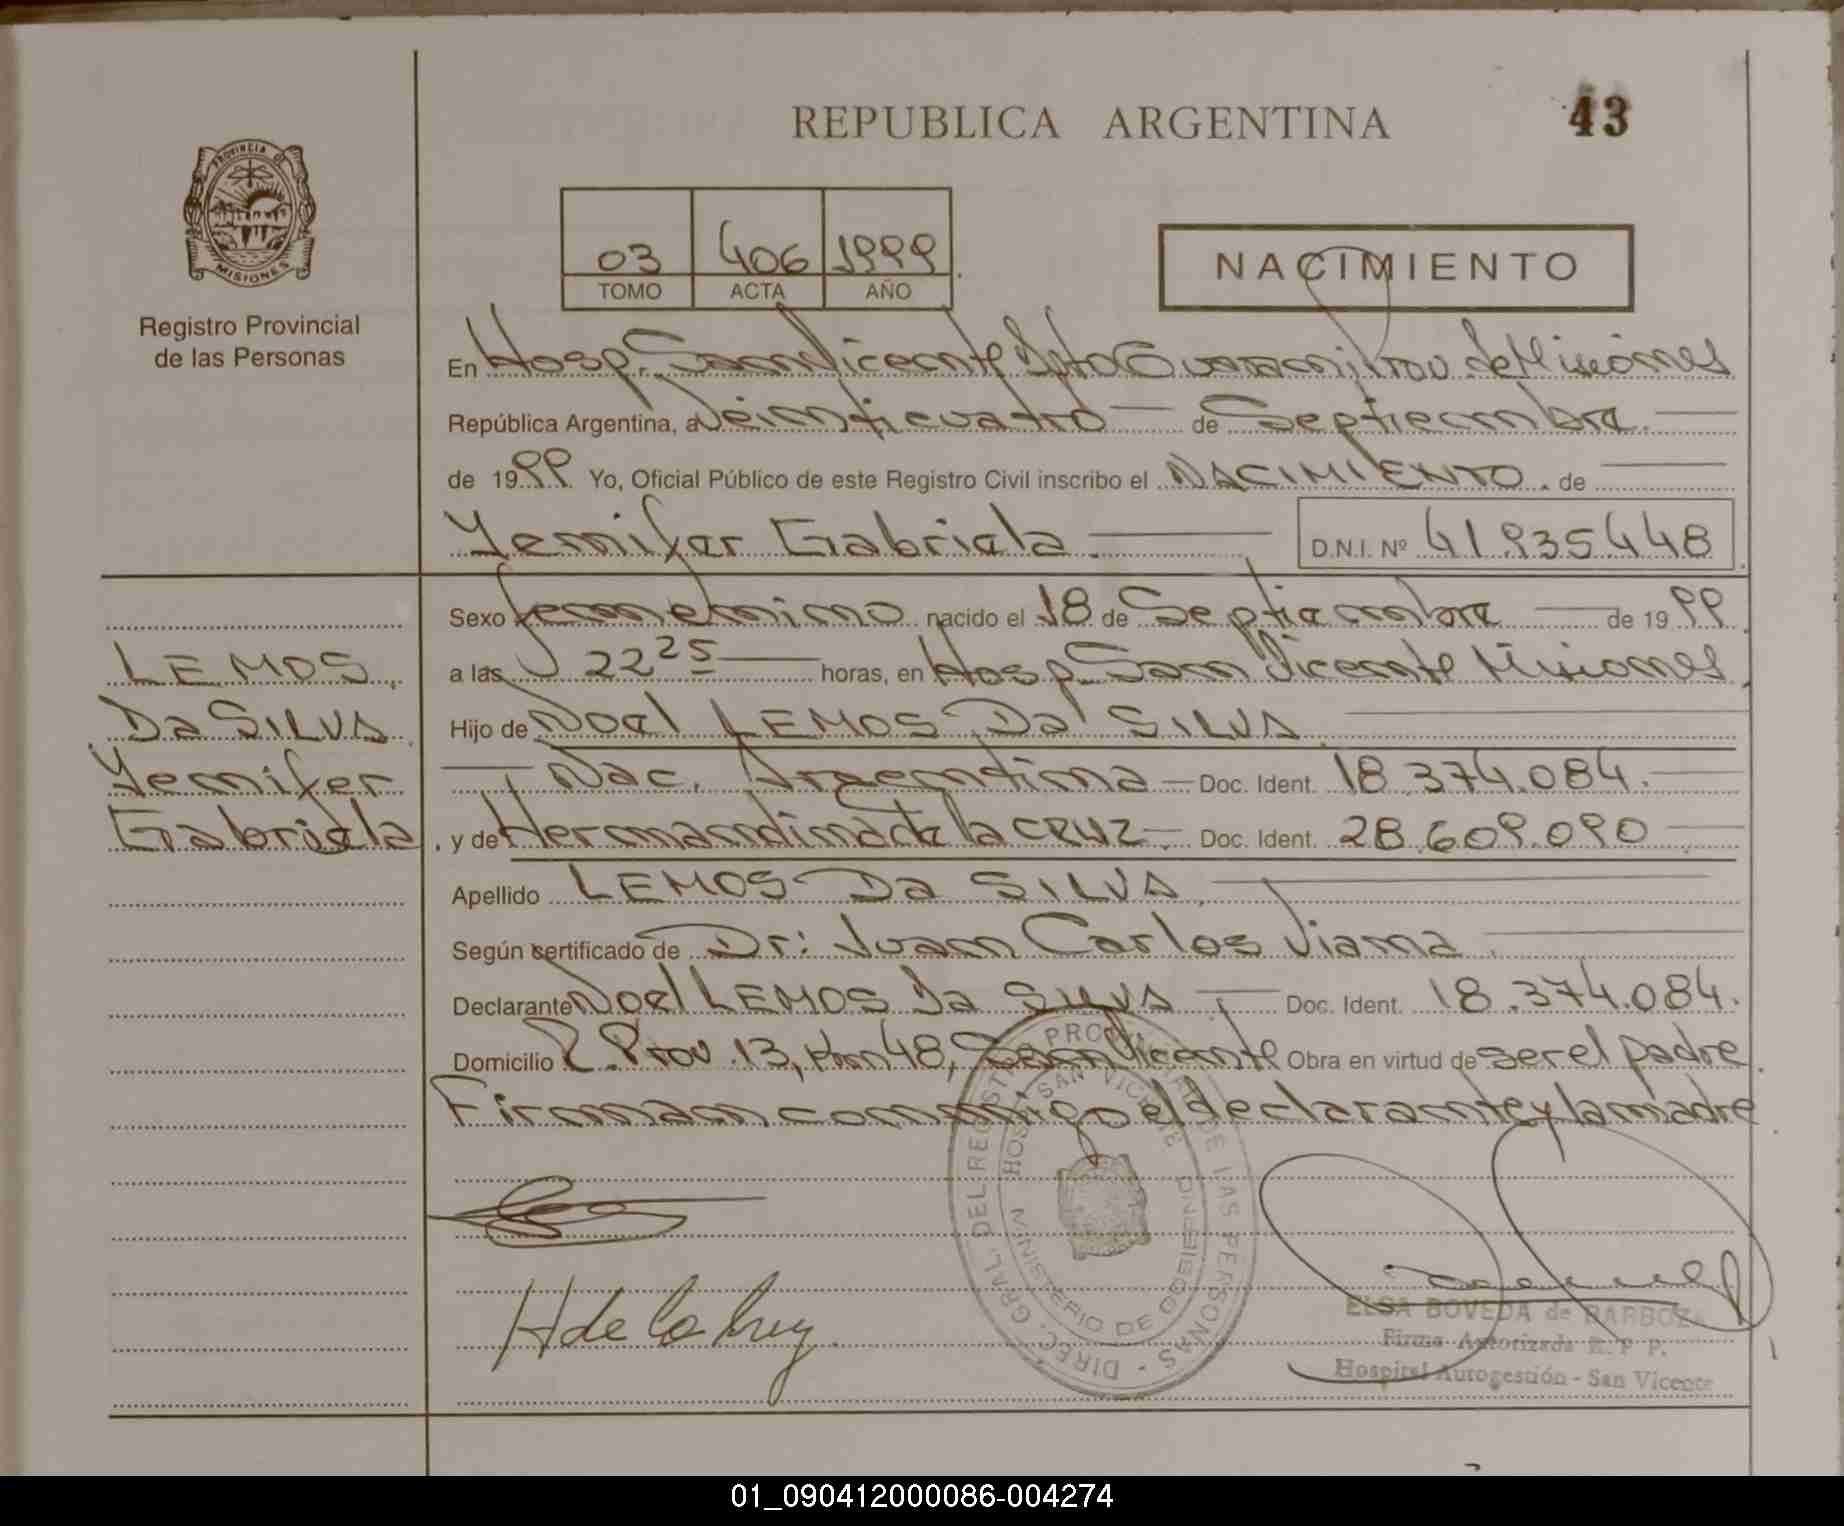 REPUBLICA ARGENTINA
43
PROVINCIA DE
MISIONES
Registro Provincial
de las Personas
03 406 1999
TOMO ACTA AÑO
NACIMIENTO
En Hosp. San Vicente Dpto Guarani, Prov. de Misiones
República Argentina, a Veinticuatro de Septiembre.
de 1999 Yo, Oficial Público de este Registro Civil inscribo el NACIMIENTO. de
Yenifer Gabriela. D.N.I. Nº 41.935448
Sexo femenino nacido el 18 de Septiembre de 1999
a las 22 25 horas, en Hosp. San Vicente Misiones.
Hijo de Noel LEMOS Da SILVA.
Nac. Argentina Doc. Ident. 18.374.084.
y de Hernandina de la CRUZ. Doc. Ident. 28.609.090
Apellido LEMOS Da SILVA.
Según certificado de Dr: Juan Carlos Viana.
Declarante Noel LEMOS Da SILVA Doc. Ident. 18.374.084.
Domicilio R. Prov. 13, Km 48, San Vicente Obra en virtud de ser el padre.
Firman conmigo el declarante y la madre.
LEMOS
Da SILVA
Yenifer
Gabriela.
H de la Cruz
DIREC. GRAL. DEL REGISTRO PROVINCIAL DE LAS PERSONAS
HOSP. SAN VICENTE
MINISTERIO DE GOBIERNO
ELSA BOVEDA de BARBOZA
Firma Autorizada R. P. P.
Hospital Autogestión - San Vicente
01_090412000086-004274